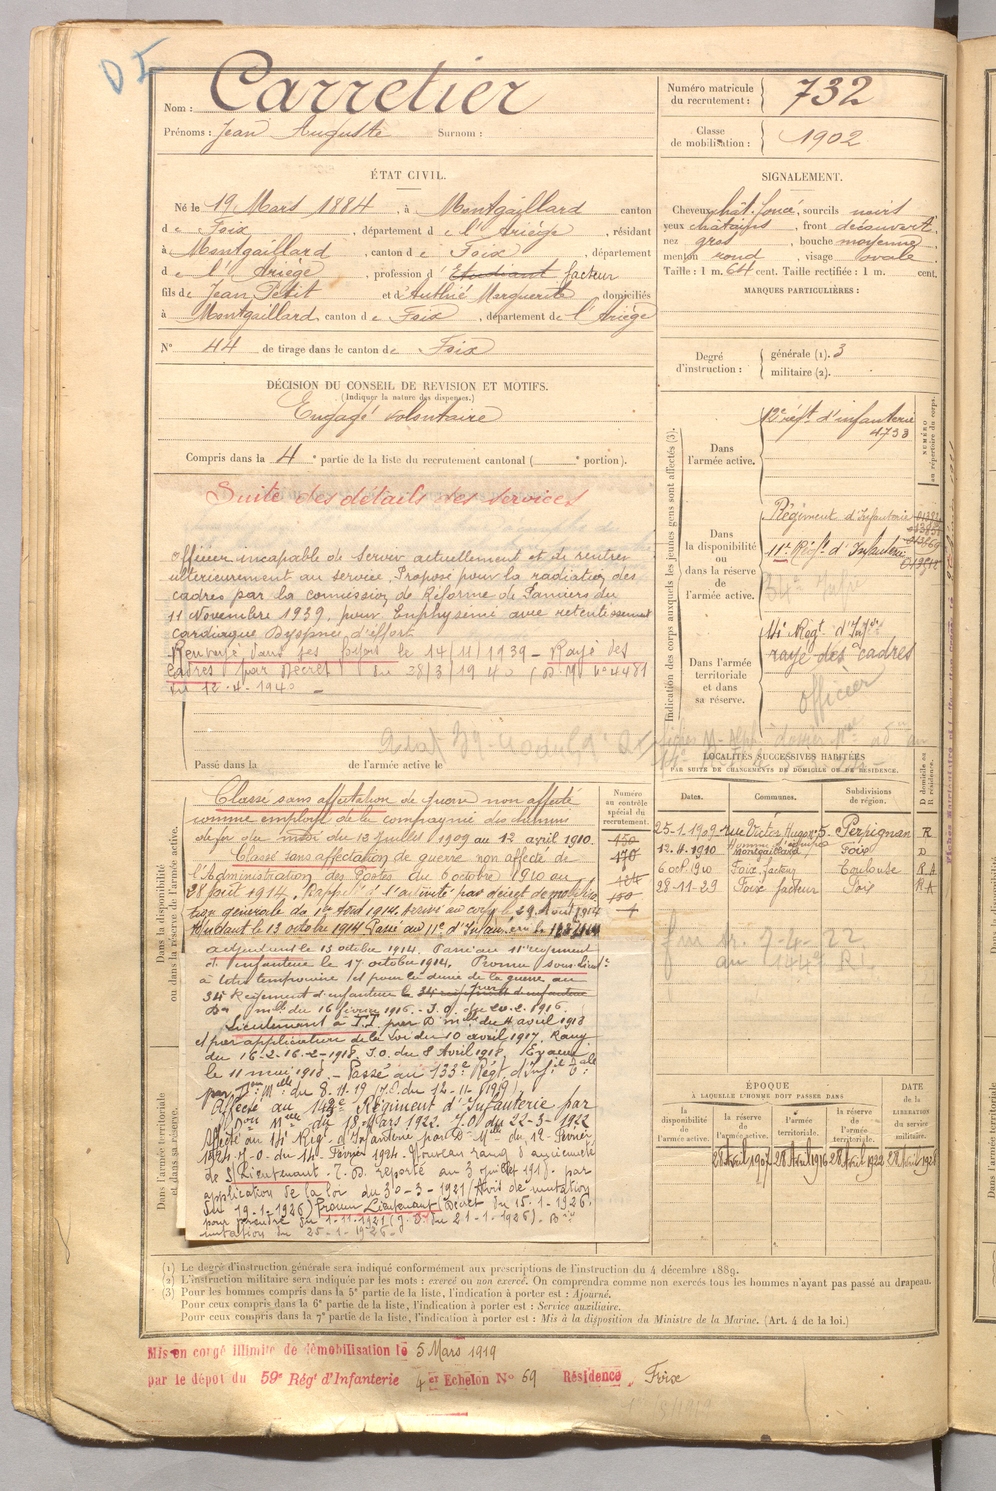 D I
Nom : Carretier
Prénoms : Jean Auguste Surnom :
Numéro matricule du recrutement : 732
Classe de mobilisation : 1902
ÉTAT CIVIL.
Né le 19 Mars 1884, à Montgaillard canton
de Foix, département de l'Ariège, résidant
à Montgaillard, canton de Foix, département
de l'Ariège, profession d'Etudiant facteur
fils de Jean Petit et d'Authié Marguerite domiciliés
à Montgaillard, canton de Foix, département de l'Ariège
N° 44 de tirage dans le canton de Foix
SIGNALEMENT.
Cheveux chât. foncé, sourcils noirs
yeux châtains, front découvert,
nez gros, bouche moyenne,
menton rond, visage ovale
Taille : 1 m. 64 cent. Taille rectifiée : 1 m. cent.
MARQUES PARTICULIÈRES :
Degré d'instruction : générale (1). 3
militaire (2).
DÉCISION DU CONSEIL DE REVISION ET MOTIFS.
(Indiquer la nature des dispenses.)
Engagé volontaire
Compris dans la 4e partie de la liste du recrutement cantonal ( e portion).
Suite des détails des services
Officier incapable de servir actuellement et de rentrer
ultérieurement au service. Proposé pour la radiation des
cadres par la comission de Réforme de Pamiers du
11 Novembre 1939, pour Emphysème avec retentissement
cardiaque Dyspnée d'effort
Renvoyé dans ses foyers le 14/11/1939 - Rayé des
cadres par Décret du 28/3/1940 (D. M. n° 4481
du 12-4-1940 -
Passé dans la de l'armée active le
Indication des corps auxquels les jeunes gens sont affectés (3).
NUMÉRO au répertoire du corps.
Dans l'armée active.
12e régt d'infanterie
4733
Dans la disponibilité ou dans la réserve de l'armée active.
Régiment d'Infanterie
11e Régt d'Infanterie
34e Infie
Dans l'armée territoriale et dans sa réserve.
14e Régt d'Infie
rayé des cadres
officier
LOCALITÉS SUCCESSIVES HABITÉES
PAR SUITE DE CHANGEMENTS DE DOMICILE OU DE RÉSIDENCE.
Dates. Communes. Subdivisions de région. D domicile ou R résidence.
25-1-1909 rue Victor Hugo, 5. Perpignan R
12.4.1910 Montgaillard Foix D
6 oct. 1910 Foix facteur Toulouse R A
28-11-23 Foix facteur Foix R A
Dans la disponibilité ou dans la réserve de l'armée active.
Dans l'armée territoriale et dans sa réserve.
Numéro au contrôle spécial du recrutement.
150
170
Classé sans affectation de guerre non affecté
comme employé de la compagnie des chemins
de fer du midi du 13 juillet 1909 au 12 avril 1910.
Classé sans affectation de guerre non affecté de
l'Administration des Postes du 6 octobre 1910 au
28 août 1914. Rappelé à l'activité par décret de mobilisa
tion générale du 1er Août 1914. Arrivé au corps le 29 Août 1914
Adjudant le 13 octobre 1914 Passé au 11e d'Infanterie le
adjudant le 13 octobre 1914. Passé au 11e régiment
d'Infanterie le 17 octobre 1914. Promu sous-Lieut.
à titre temporaire et pour la durée de la guerre au
34e Régiment d'infanterie le 34e régiment d'infanterie par
Dn mlle du 16 février 1916. - J.O. du 20-2-1916.
Lieutenant à T.T. par D. mlle du 4 avril 1918
et par application de la Loi du 10 avril 1917. Rang
du 16-2-16.-2-1918. J.O. du 8 Avril 1918. Evacué
le 11 mai 1918. - Passé au 133e Régt d'Infie
par Don Mlle du 8-11-19 (J.O. du 12-11-1919)
Affecté au 142e Régiment d'Infanterie par
Don Mlle du 18 Mars 1922. J.O. du 22-3-1922
Affecté au 14e Régt d'Infanterie par D. Mlle du 12 Février
1924. J.O. du 14 Février 1924. Nouveau rang d'ancienneté
de S/Lieutenant T.D. reporté au 3 juillet 1919. par
application de la loi du 30-3-1921 (Avis de mutation
du 19-1-1926) Promu Lieutenant (Décret du 15-1-1926,
pour prendre du 1-11-1921 (J.O. du 21-1-1926).
mutation du 25-1-1926 -
fm tr. 7-4-22
au 144e R.I.
ÉPOQUE
À LAQUELLE L'HOMME DOIT PASSER DANS
la disponibilité de l'armée active.
la réserve de l'armée active.
l'armée territoriale.
la réserve de l'armée territoriale.
DATE de la LIBÉRATION du service militaire.
28 Avril 1907 28 Avril 1916 28 Avril 1922 28 Avril 1928
(1) Le degré d'instruction générale sera indiqué conformément aux prescriptions de l'instruction du 4 décembre 1889.
(2) L'instruction militaire sera indiquée par les mots : exercé ou non exercé. On comprendra comme non exercés tous les hommes n'ayant pas passé au drapeau.
(3) Pour les hommes compris dans la 5e partie de la liste, l'indication à porter est : Ajourné.
Pour ceux compris dans la 6e partie de la liste, l'indication à porter est : Service auxiliaire.
Pour ceux compris dans la 7e partie de la liste, l'indication à porter est : Mis à la disposition du Ministre de la Marine. (Art. 4 de la loi.)
Mis en congé illimité de démobilisation le 5 Mars 1919
par le dépôt du 59e Régt d'Infanterie 4e Echelon N° 69 Résidence, Foix